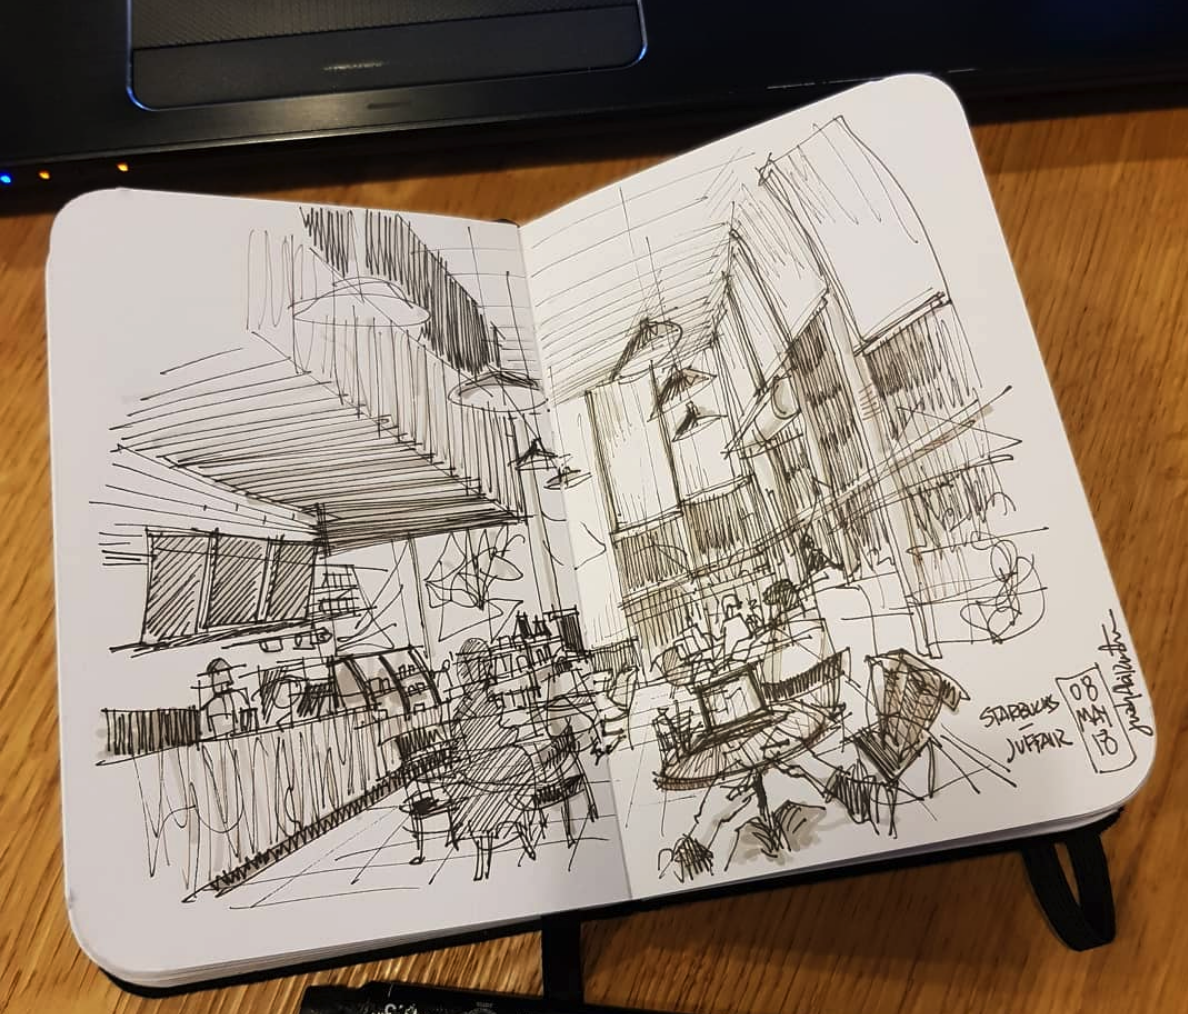 STARBUCKS
JUFFAIR
08
MAY
18